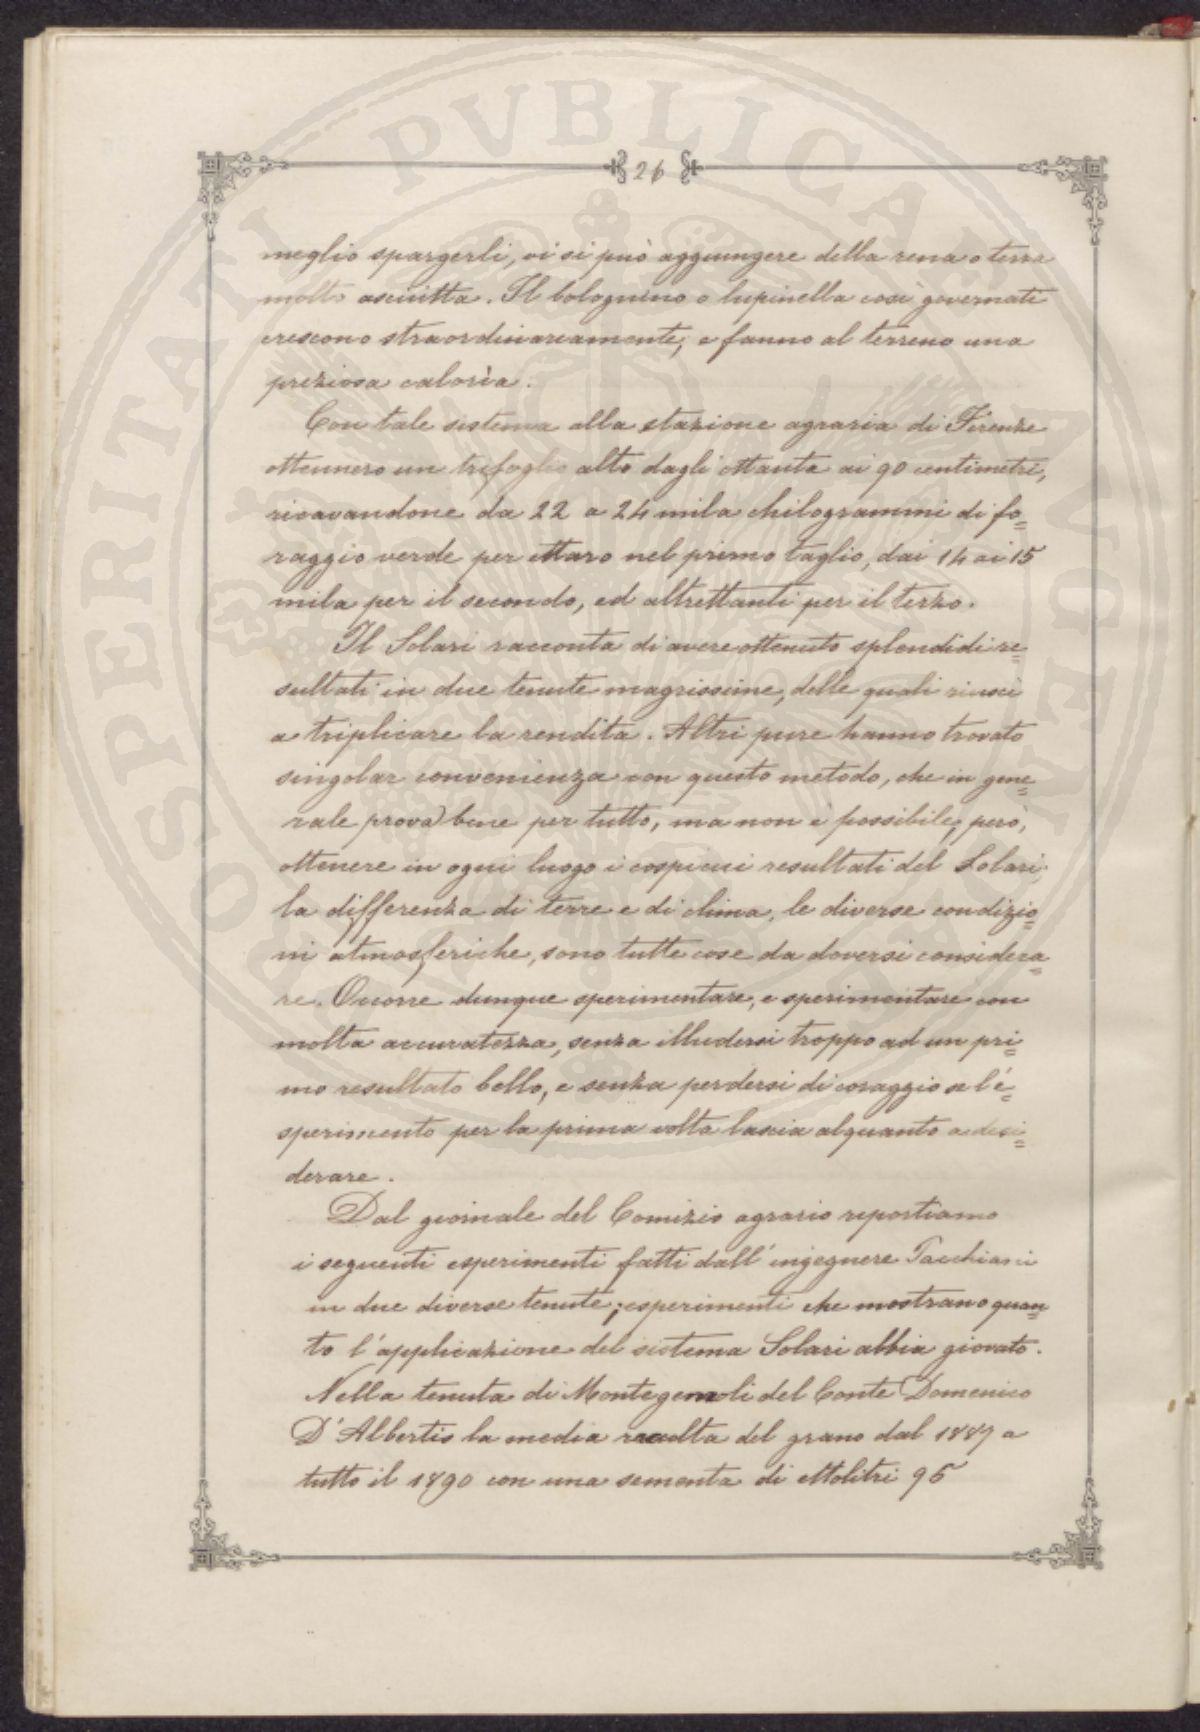 26
meglio spargerli, vi si può aggiungere della rena o terra
molto asciutta. Il bolognino o lupinella così governati
crescono straordinariamente, e fanno al terreno una
preziosa calorìa.
Con tale sistema alla stazione agraria di Firenze
ottennero un trifoglio alto dagli ottanta ai 90 centimetri,
ricavandone da 22 a 24 mila chilogrammi di fo=
raggio verde per ettaro nel primo taglio, dai 14 ai 15
mila per il secondo, ed altrettanti per il terzo.
Il Solari racconta di avere ottenuto splendidi re=
sultati in due tenute magrissime, delle quali riuscì
a triplicare la rendita. Altri pure hanno trovato
singolar convenienza con questo metodo, che in gene=
rale prova bene per tutto, ma non è possibile, però,
ottenere in ogni luogo i cospicui resultati del Solari;
la differenza di terre e di clima, le diverse condizio=
ni atmosferiche, sono tutte cose da doversi considera=
re. Occorre dunque sperimentare, e sperimentare con
molta accuratezza, senza illudersi troppo ad un pri=
mo resultato bello, e senza perdersi di coraggio se l'e=
sperimento per la prima volta lascia alquanto a desi=
derare.
Dal giornale del Comizio agrario riportiamo
i seguenti esperimenti fatti dall'ingegnere Tacchiani
in due diverse tenute; esperimenti che mostrano quan=
to l'applicazione del sistema Solari abbia giovato.
Nella tenuta di Montegemoli del Conte Domenico
D'Albertis la media raccolta del grano dal 1887 a
tutto il 1890 con una sementa di ettolitri 95
SPERITATI PVBLICAE AVGENDAE